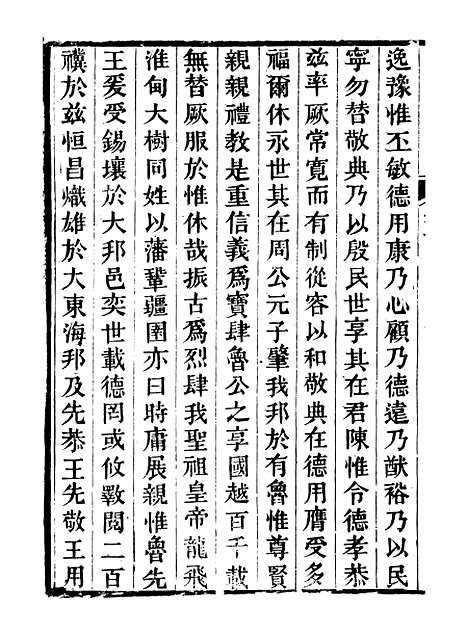 逸豫惟丕敏德用康乃心顧乃德遠乃猷裕乃以民
寧勿替敬典乃以殷民世享其在君陳惟令德孝恭
茲率厥常寬而有制從容以和敬典在德用膺受多
福爾休永世其在周公元子肇我邦於有魯惟尊賢
親親禮教是重信義爲寶肆魯公之享國越百千載
無替厥服於惟休哉振古爲烈肆我聖祖皇帝龍飛
淮甸大樹同姓以藩鞏疆圉亦曰時庸展親惟魯先
王爰受錫壤於大邦邑奕世載德罔或攸斁閱二百
禩於茲恒昌熾雄於大東海邦及先恭王先敬王用